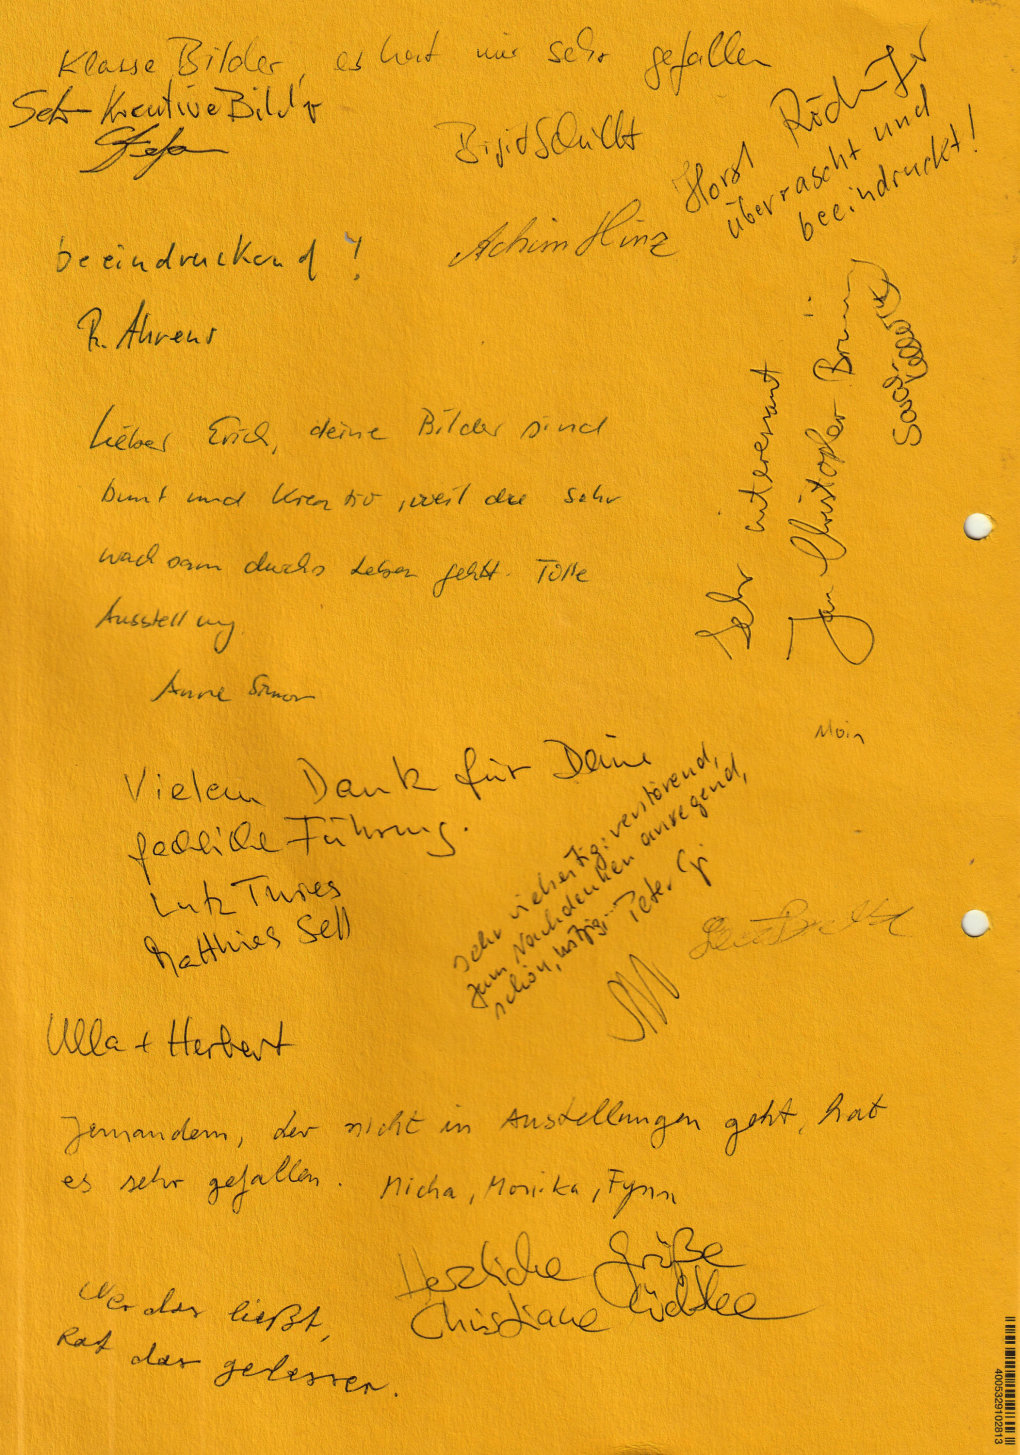 Klasse Bilder, es hat mir sehr gefallen
Sehr Kreative Bild'r
Stefan
Horst Rödiger
überrascht und
beeindruckt!
Achim Hinz
beeindruckend!
R. Ahrens
Lieber Erich, deine Bilder sind
bunt und kreativ, weil du sehr
wachsam durchs Leben gehst. Tolle
Ausstellung
Anne Simon
Sehr interessant
Jan-Christopher Brüning
Moin
Vielen Dank für Deine
fachliche Führung.
Lutz
Matthies Sell
sehr vielseitig: verstörend,
zum Nachdenken anregend,
schön, witzig... Peter
Ulla + Herbert
Jemandem, der nicht in Ausstellungen geht, hat
es sehr gefallen. Micha, Monika, Fynn
Herzliche Grüße
Christiane Lüdtke
Wer das ließt,
hat das gelessen.
4005329102813